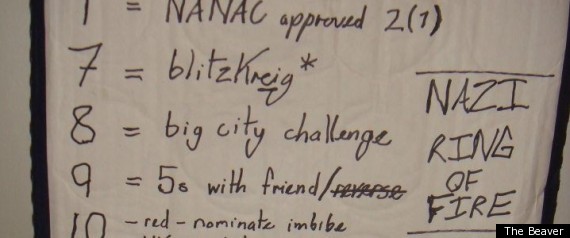 1 = NANAC approved 2(1)
7 = blitzkreig*
8 = big city challenge
9 = 5s with friend/reverse
10 - red - nominate imbibe
NAZI
RING
OF
FIRE
The Beaver